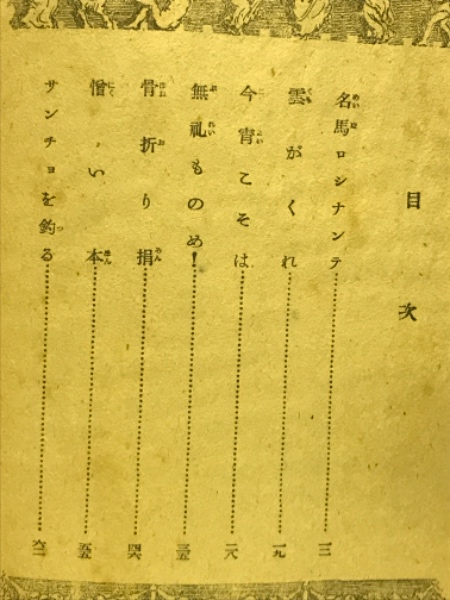 目次
名馬ロシナンテ……一三
雲がくれ……一九
今宵こそは……二八
無礼ものめ!……三五
骨折り損……四六
憎い本……五五
サンチョを釣る……六二